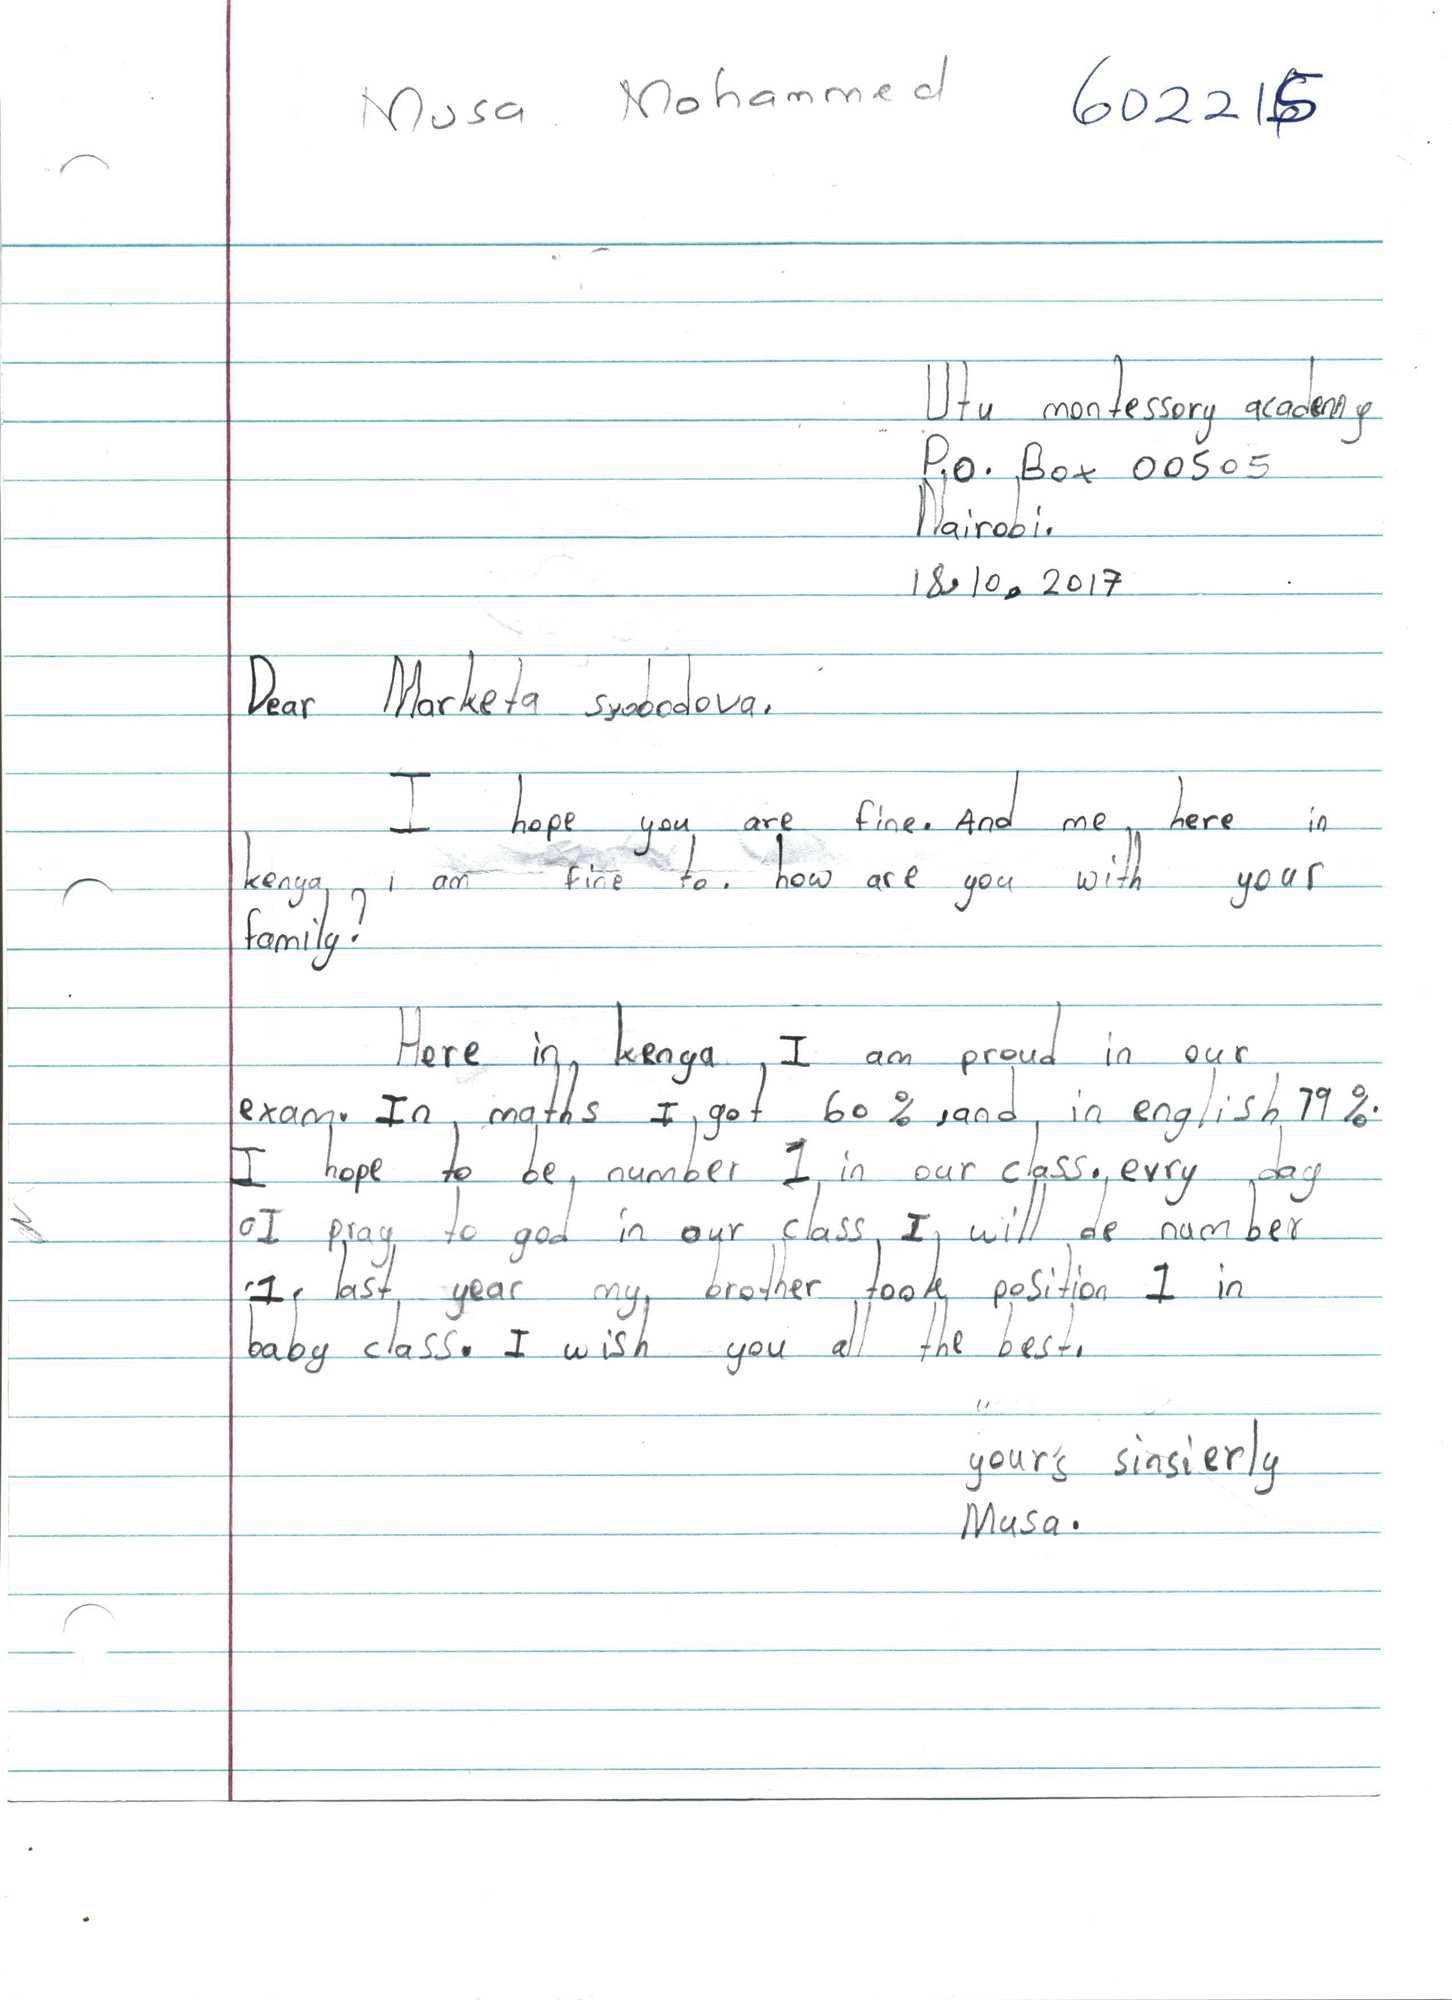 Musa Mohammed 602215
Utu montessory academy
P.O. Box 00505
Nairobi.
18.10.2017
Dear Marketa svobodova.
I hope you are fine. And me here in
kenya, i am fine to. how are you with your
family?
Here in kenya, I am proud in our
exam. In maths I got 60%, and in english 79%.
I hope to be number 1 in our class. evry day
I pray to god in our class I will de number
1, last year my brother took position 1 in
baby class. I wish you all the best.
your's sinsierly
Musa.